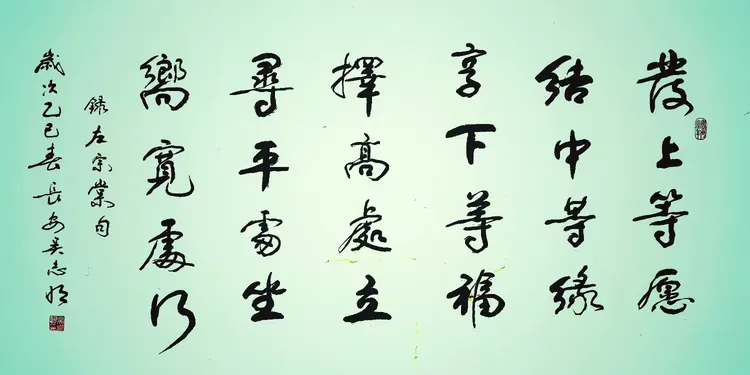 發上等愿
結中等緣
享下等福
擇高處立
尋平處坐
嚮寬處行
錄左宗棠句
歲次乙巳春長安吳志明